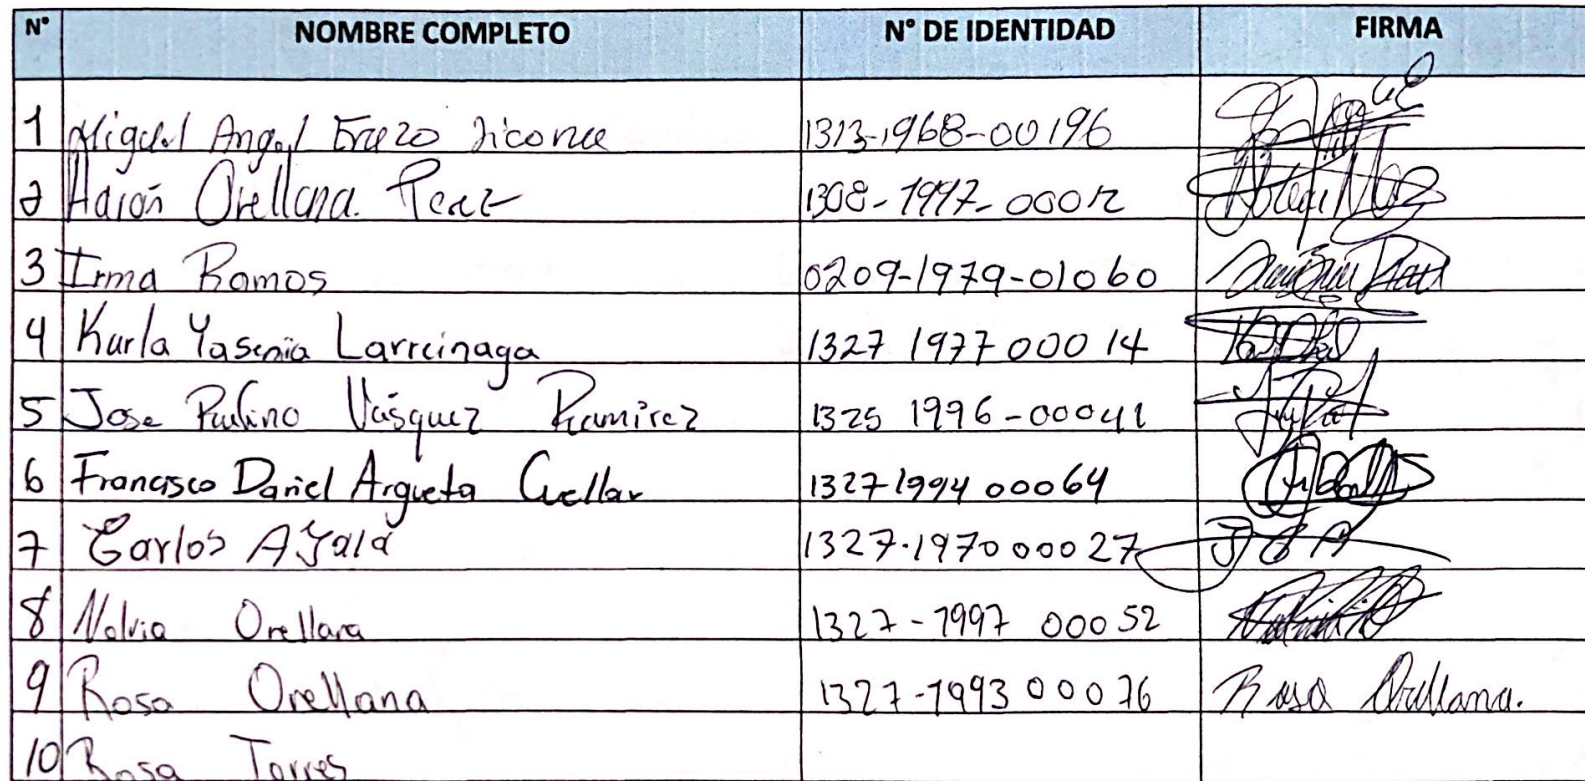 N° NOMBRE COMPLETO N° DE IDENTIDAD FIRMA
1 Miguel Angel Erazo 1313-1968-00196
2 Orellana 1308-1997-00012
3 Irma Ramos 0209-1979-01060
4 Karla Yasenia Larreinaga 1327 1977 00014
5 Jose Paulino Vásquez Ramirez 1325 1996-00041
6 Francisco Daniel Argueta Cuellar 1327-1994 00064
7 Carlos Ayala 1327.1970 00027 JCA
8 Nolvia Orellana 1327-1997 00052
9 Rosa Orellana 1327-1993 00076 Rosa Orellana.
10 Rosa Torres